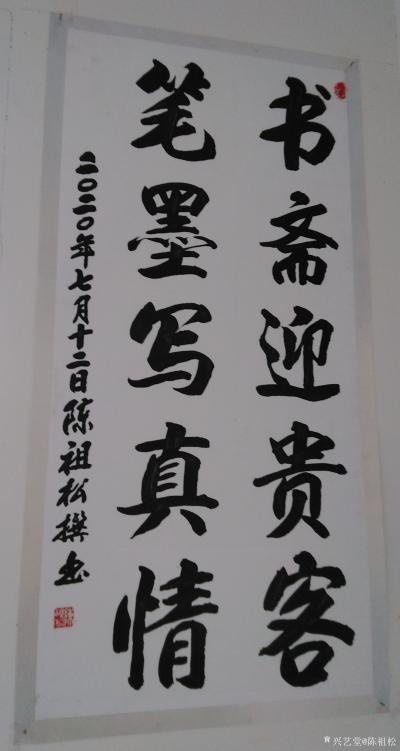 书斋迎贵客
笔墨写真情
二〇二〇年七月十二日陈祖松撰书
兴艺堂@陈祖松